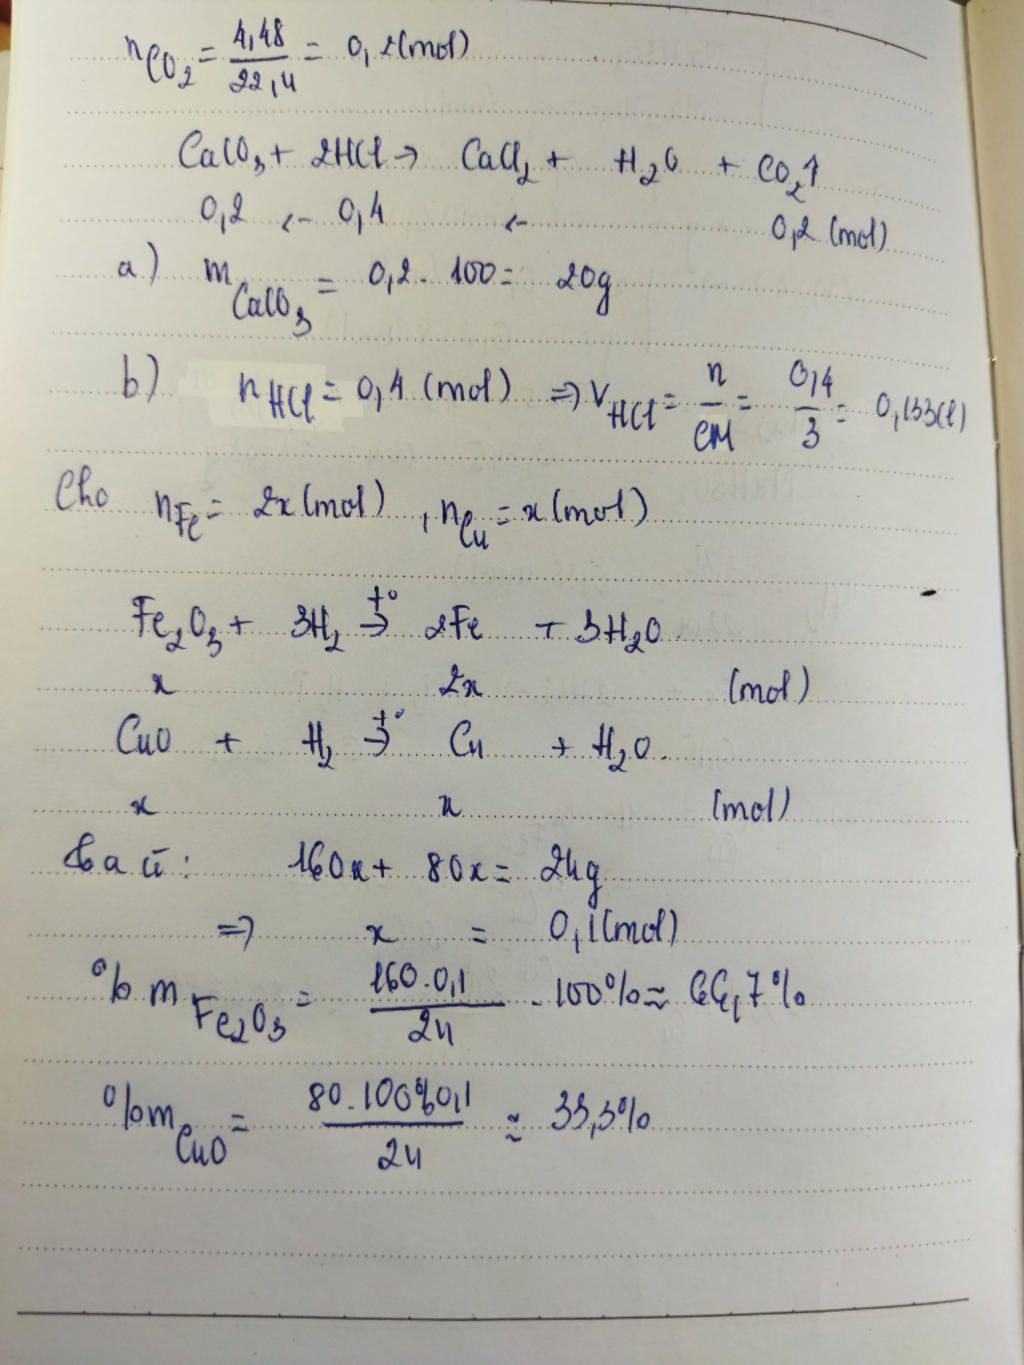 nCO₂ = 4,48/22,4 = 0,2(mol)
CaCO₃ + 2HCl → CaCl₂ + H₂O + CO₂↑
0,2 ← 0,4 ← 0,2 (mol)
a) mCaCO₃ = 0,2 . 100 = 20g
b) nHCl = 0,4 (mol) ⇒ VHCl = n/CM = 0,4/3 = 0,133(l)
Cho nFe = 2x(mol), nCu = x(mol)
Fe₂O₃ + 3H₂ t°→ 2Fe + 3H₂O
x 2x (mol)
CuO + H₂ t°→ Cu + H₂O.
x x (mol)
160x + 80x = 24g
⇒ x = 0,1(mol)
%mFe₂O₃ = 160.0,1/24 . 100% ≈ 66,7%
%mCuO = 80.100%0,1/24 ≈ 33,3%